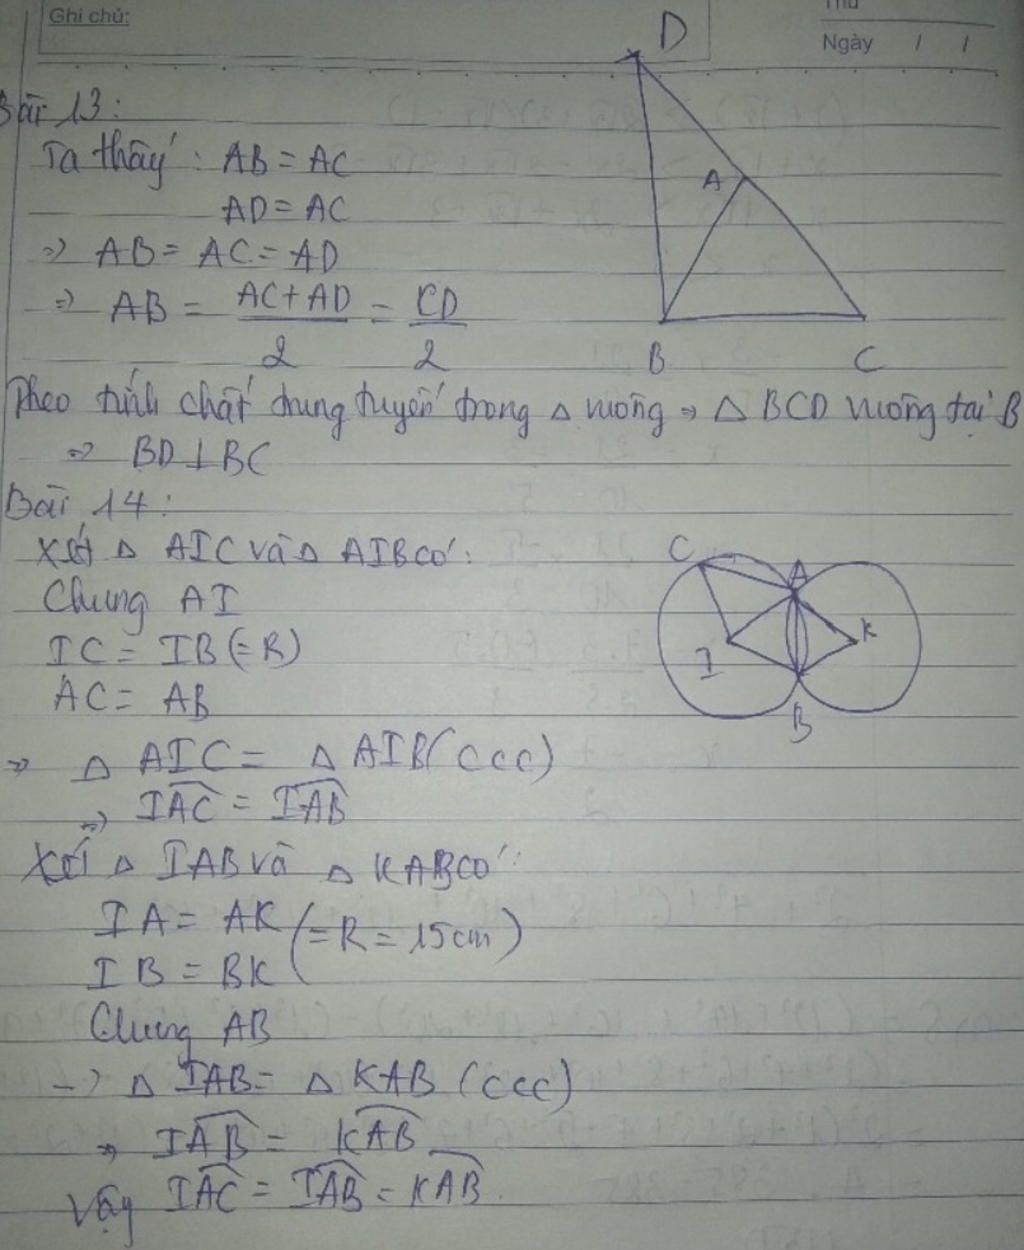 Ghi chú:
Thứ
Ngày / /
Bài 13:
Ta thấy: AB = AC
AD = AC
=> AB = AC = AD
=> AB = AC + AD / 2 = CD / 2
Theo tính chất trung tuyến trong Δ vuông => Δ BCD vuông tại B
=> BD ⊥ BC
D
A
B
C
Bài 14:
Xét Δ AIC và Δ AIB có:
Chung AI
IC = IB (= R)
AC = AB
=> Δ AIC = Δ AIB (ccc)
=> IAC = IAB
C
A
I
K
B
Xét Δ IAB và Δ KAB có:
IA = AK
IB = BK
(= R = 15cm)
Chung AB
-> Δ IAB = Δ KAB (ccc)
=> IAB = KAB
Vậy IAC = IAB = KAB.